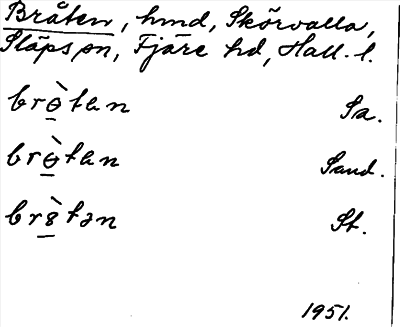 Bråten, hmd, Skörvalla,
Släps sn, Fjäre hd, Hall. l.
brò̱tan Sa.
brò̱tan Sand.
brò̱tən St.
1951.